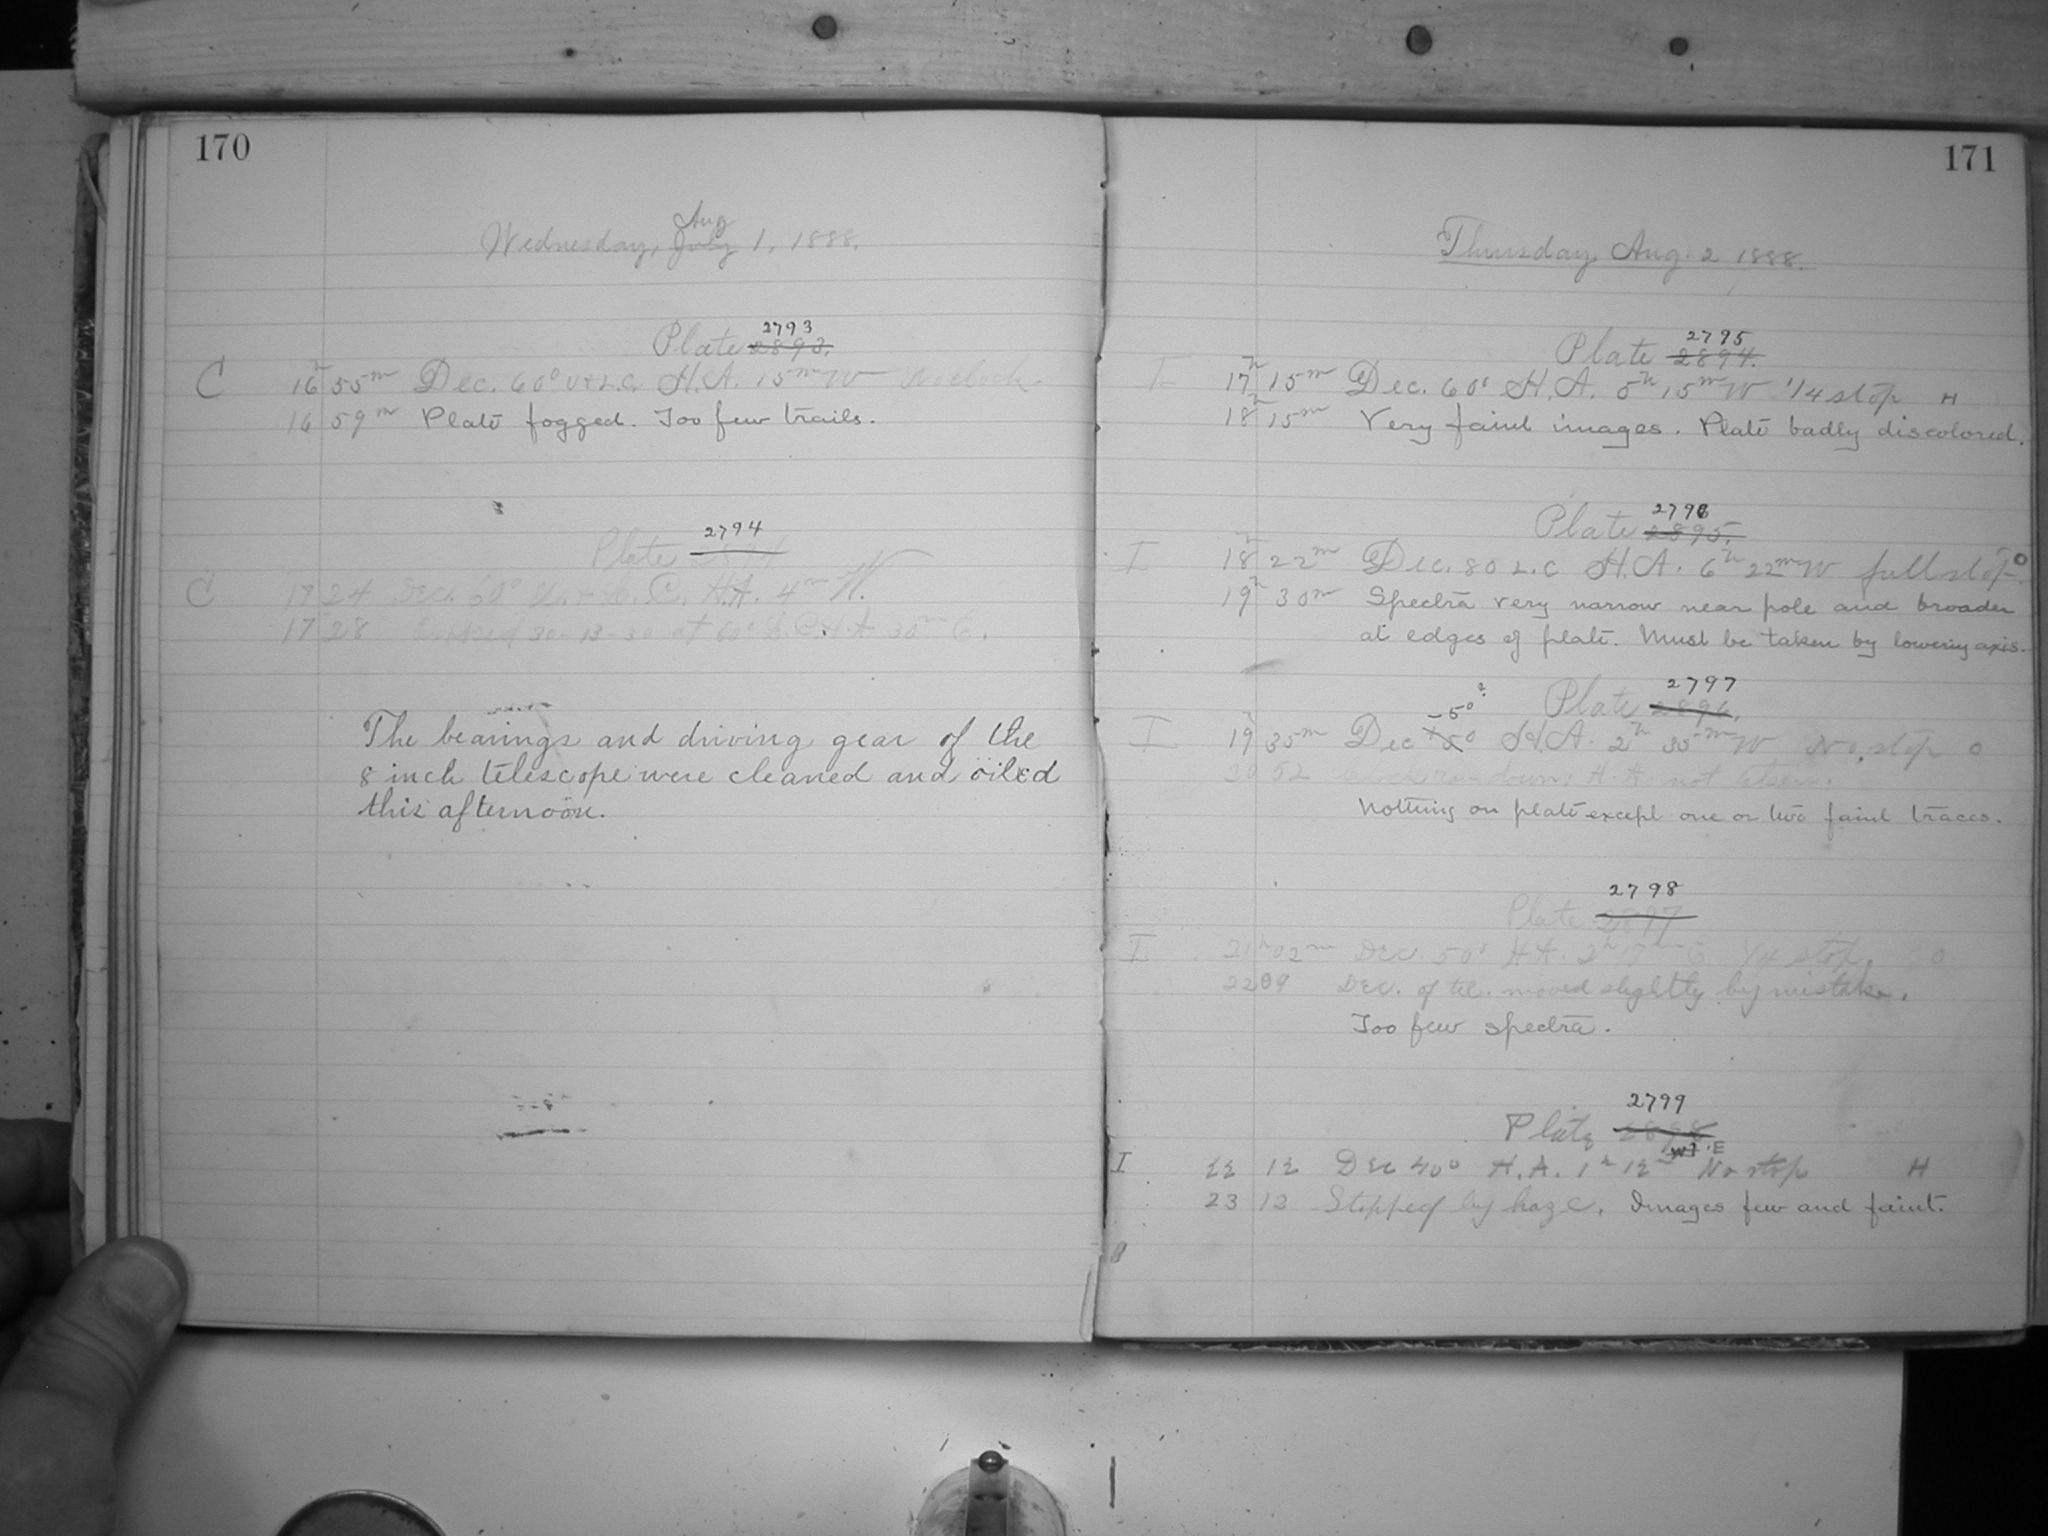 170
Aug
Wednesday, July 1, 1888.
2793
Plate 2893.
C 16h 55m Dec. 60° U+L.C. H.A. 15m W No clock.
16 59m Plate fogged. Too few trails.
2794
Plate 2894
C 17 24 Dec. 60° U. + L. C. H.A. 4m W.
17 28 30-13-30 at 60° L.C. H.A 30m E.
The bearings and driving gear of the
8 inch telescope were cleaned and oiled
this afternoon.
171
Thursday Aug. 2 1888.
2795
Plate 2894.
I 17h 15m Dec. 60° H.A. 5h 15m W 1/4 stop H
18h 15m Very faint images. Plate badly discolored.
2796
Plate 2895.
I 18h 22m Dec. 80 L.C H.A. 6h 22m W full stop. O
19h 30m Spectra very narrow near pole and broader
at edges of plate. Must be taken by lowering axis.
2797
Plate 2896.
-5°?
I 19h 35m Dec +50 H.A. 2h 35m W No stop O
20 52 Clock ran down, H.A. not taken.
Nothing on plate except one or two faint traces.
2798
Plate 2897
I 21h 02m Dec. 50° H.A. 2h 17m E 1/4 stop. O
22 09 Dec. of tel. moved slightly by mistake.
Too few spectra.
2799
Plate 2898
I 22 12 Dec 40° H.A. 1h 12m W E No stop H
23 13 Stopped by haze. Images few and faint.